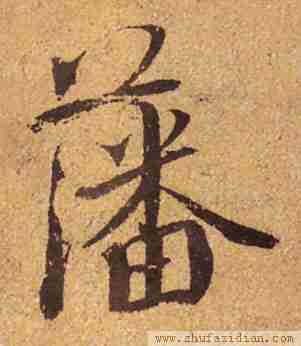 藩
www.shufazidian.com